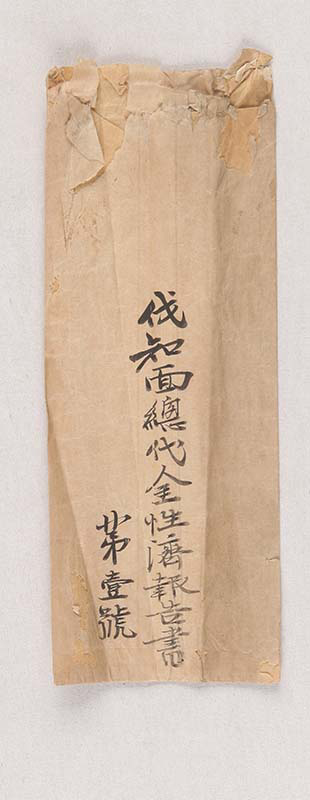 伐知面總代金性濟報告書
第壹號